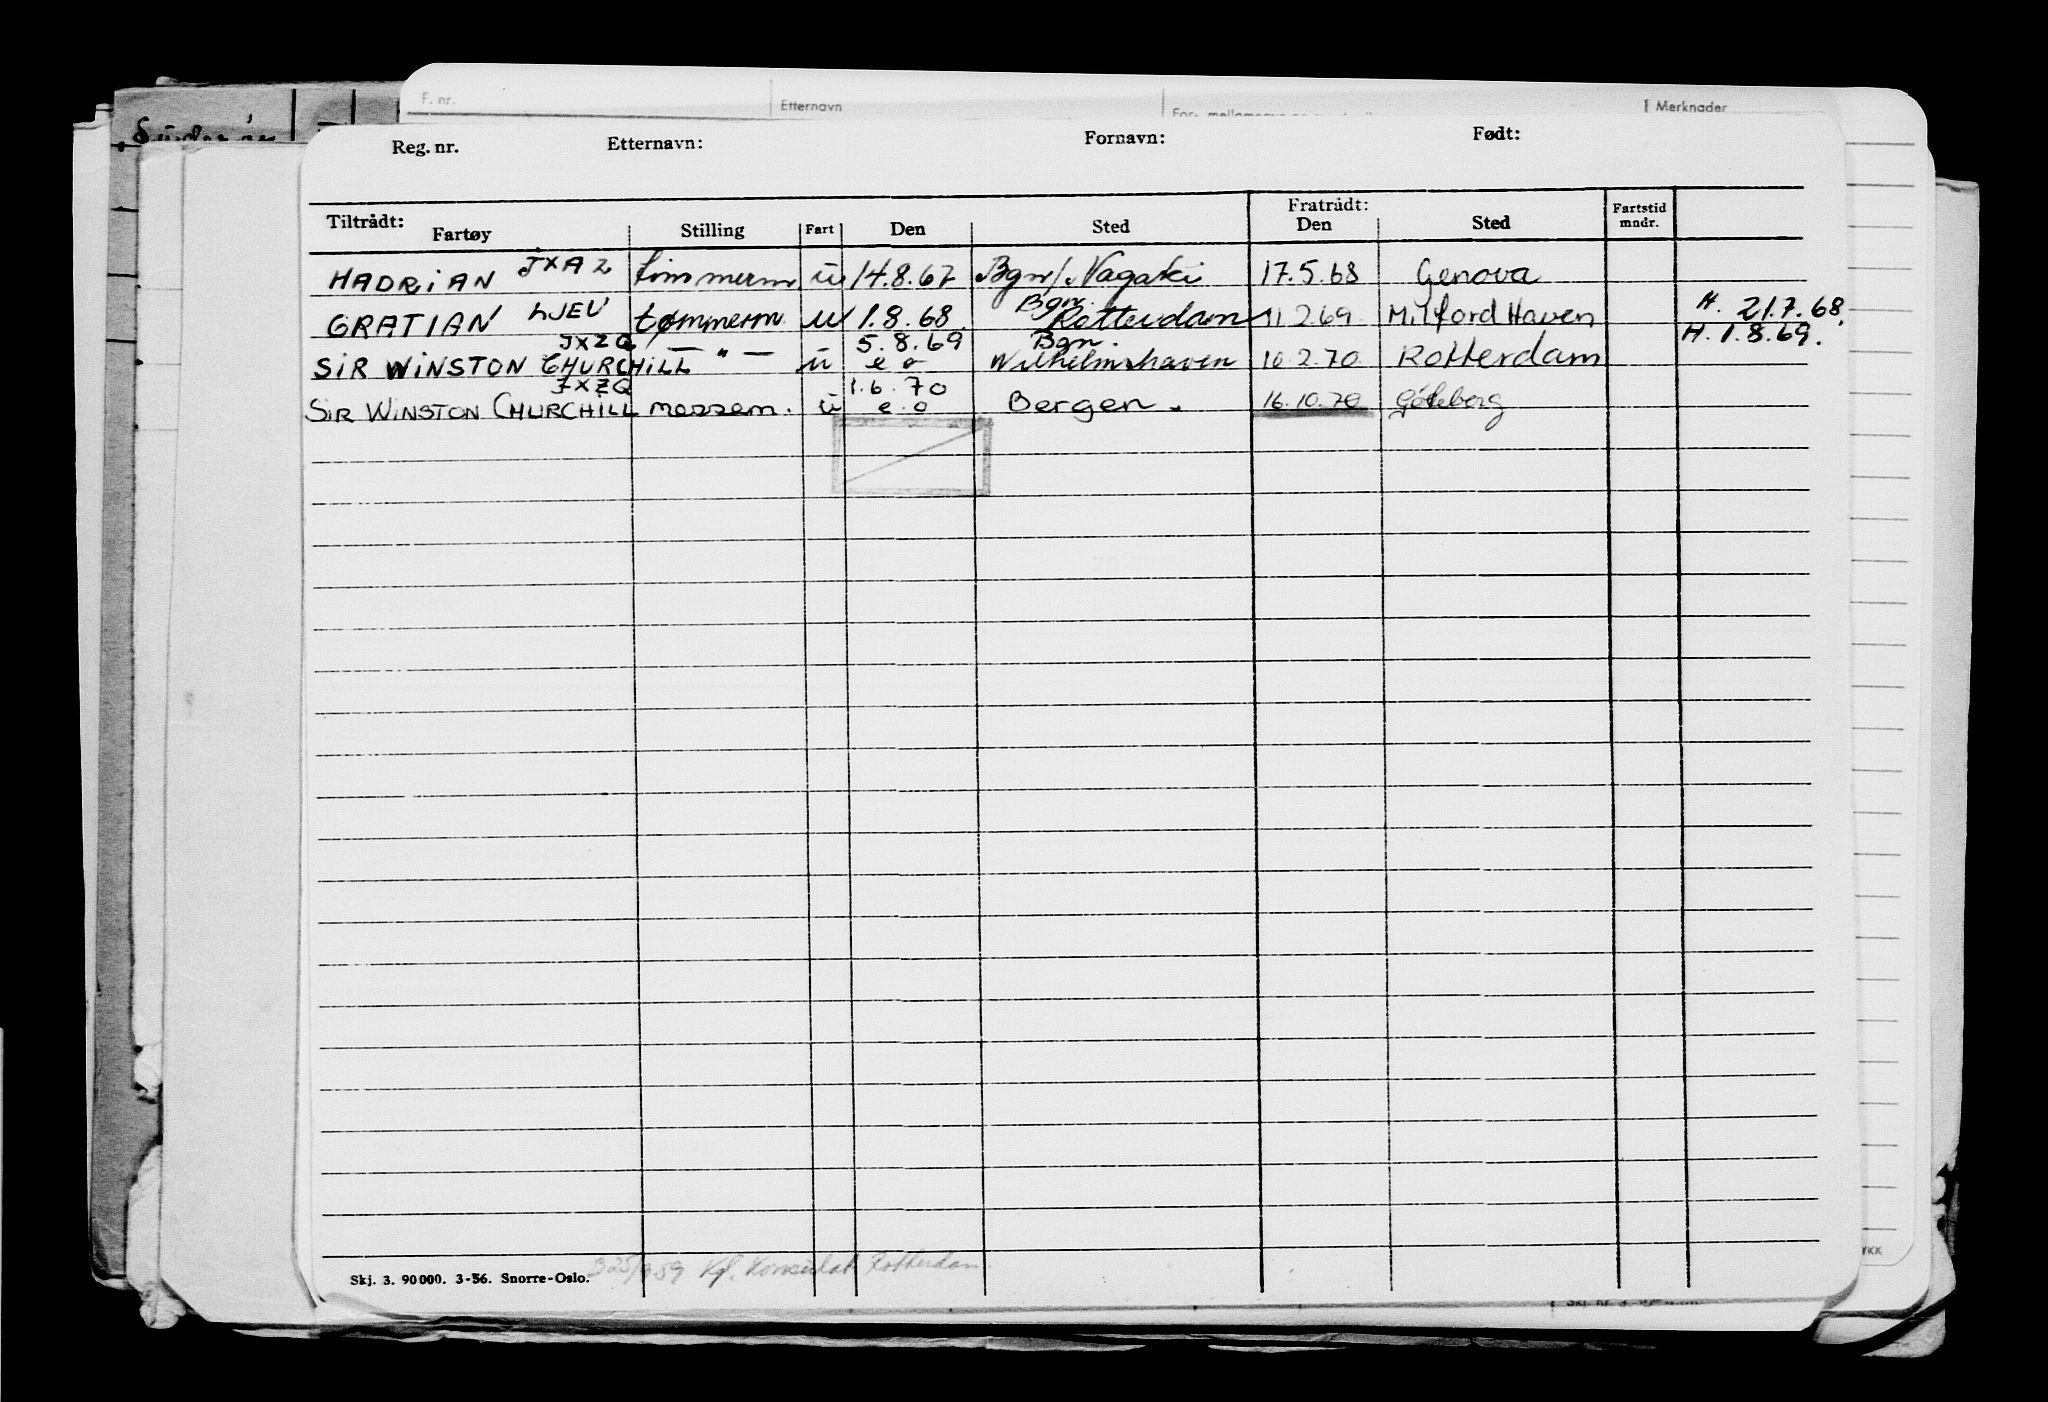 F. nr. Etternavn Merknader
Reg. nr. Etternavn: Fornavn: Født:
Tiltrådt: Fratrådt: Fartstid
Fartøy Stilling Fart Den Sted Den Sted mndr.
HADRIAN JXAZ tømmerm u 14.8.67 Bgn/Nagaki 17.5.68 Genova
GRATIAN LJEV tømmerm u 1.8.68 Bgn. Rotterdam 11 2 69 Milford Haven H. 21.7.68.
SIR WINSTON CHURCHILL JXZQ — " — u 5.8.69 e o Bgn. Wilhelmshaven 10.2.70 Rotterdam H. 1.8.69.
SIR WINSTON CHURCHILL JXZQ messem. u 1.6.70 e.o Bergen. 16.10.70 Göteborg
Skj. 3. 90000. 3-56. Snorre-Oslo. Konsulat Rotterdam